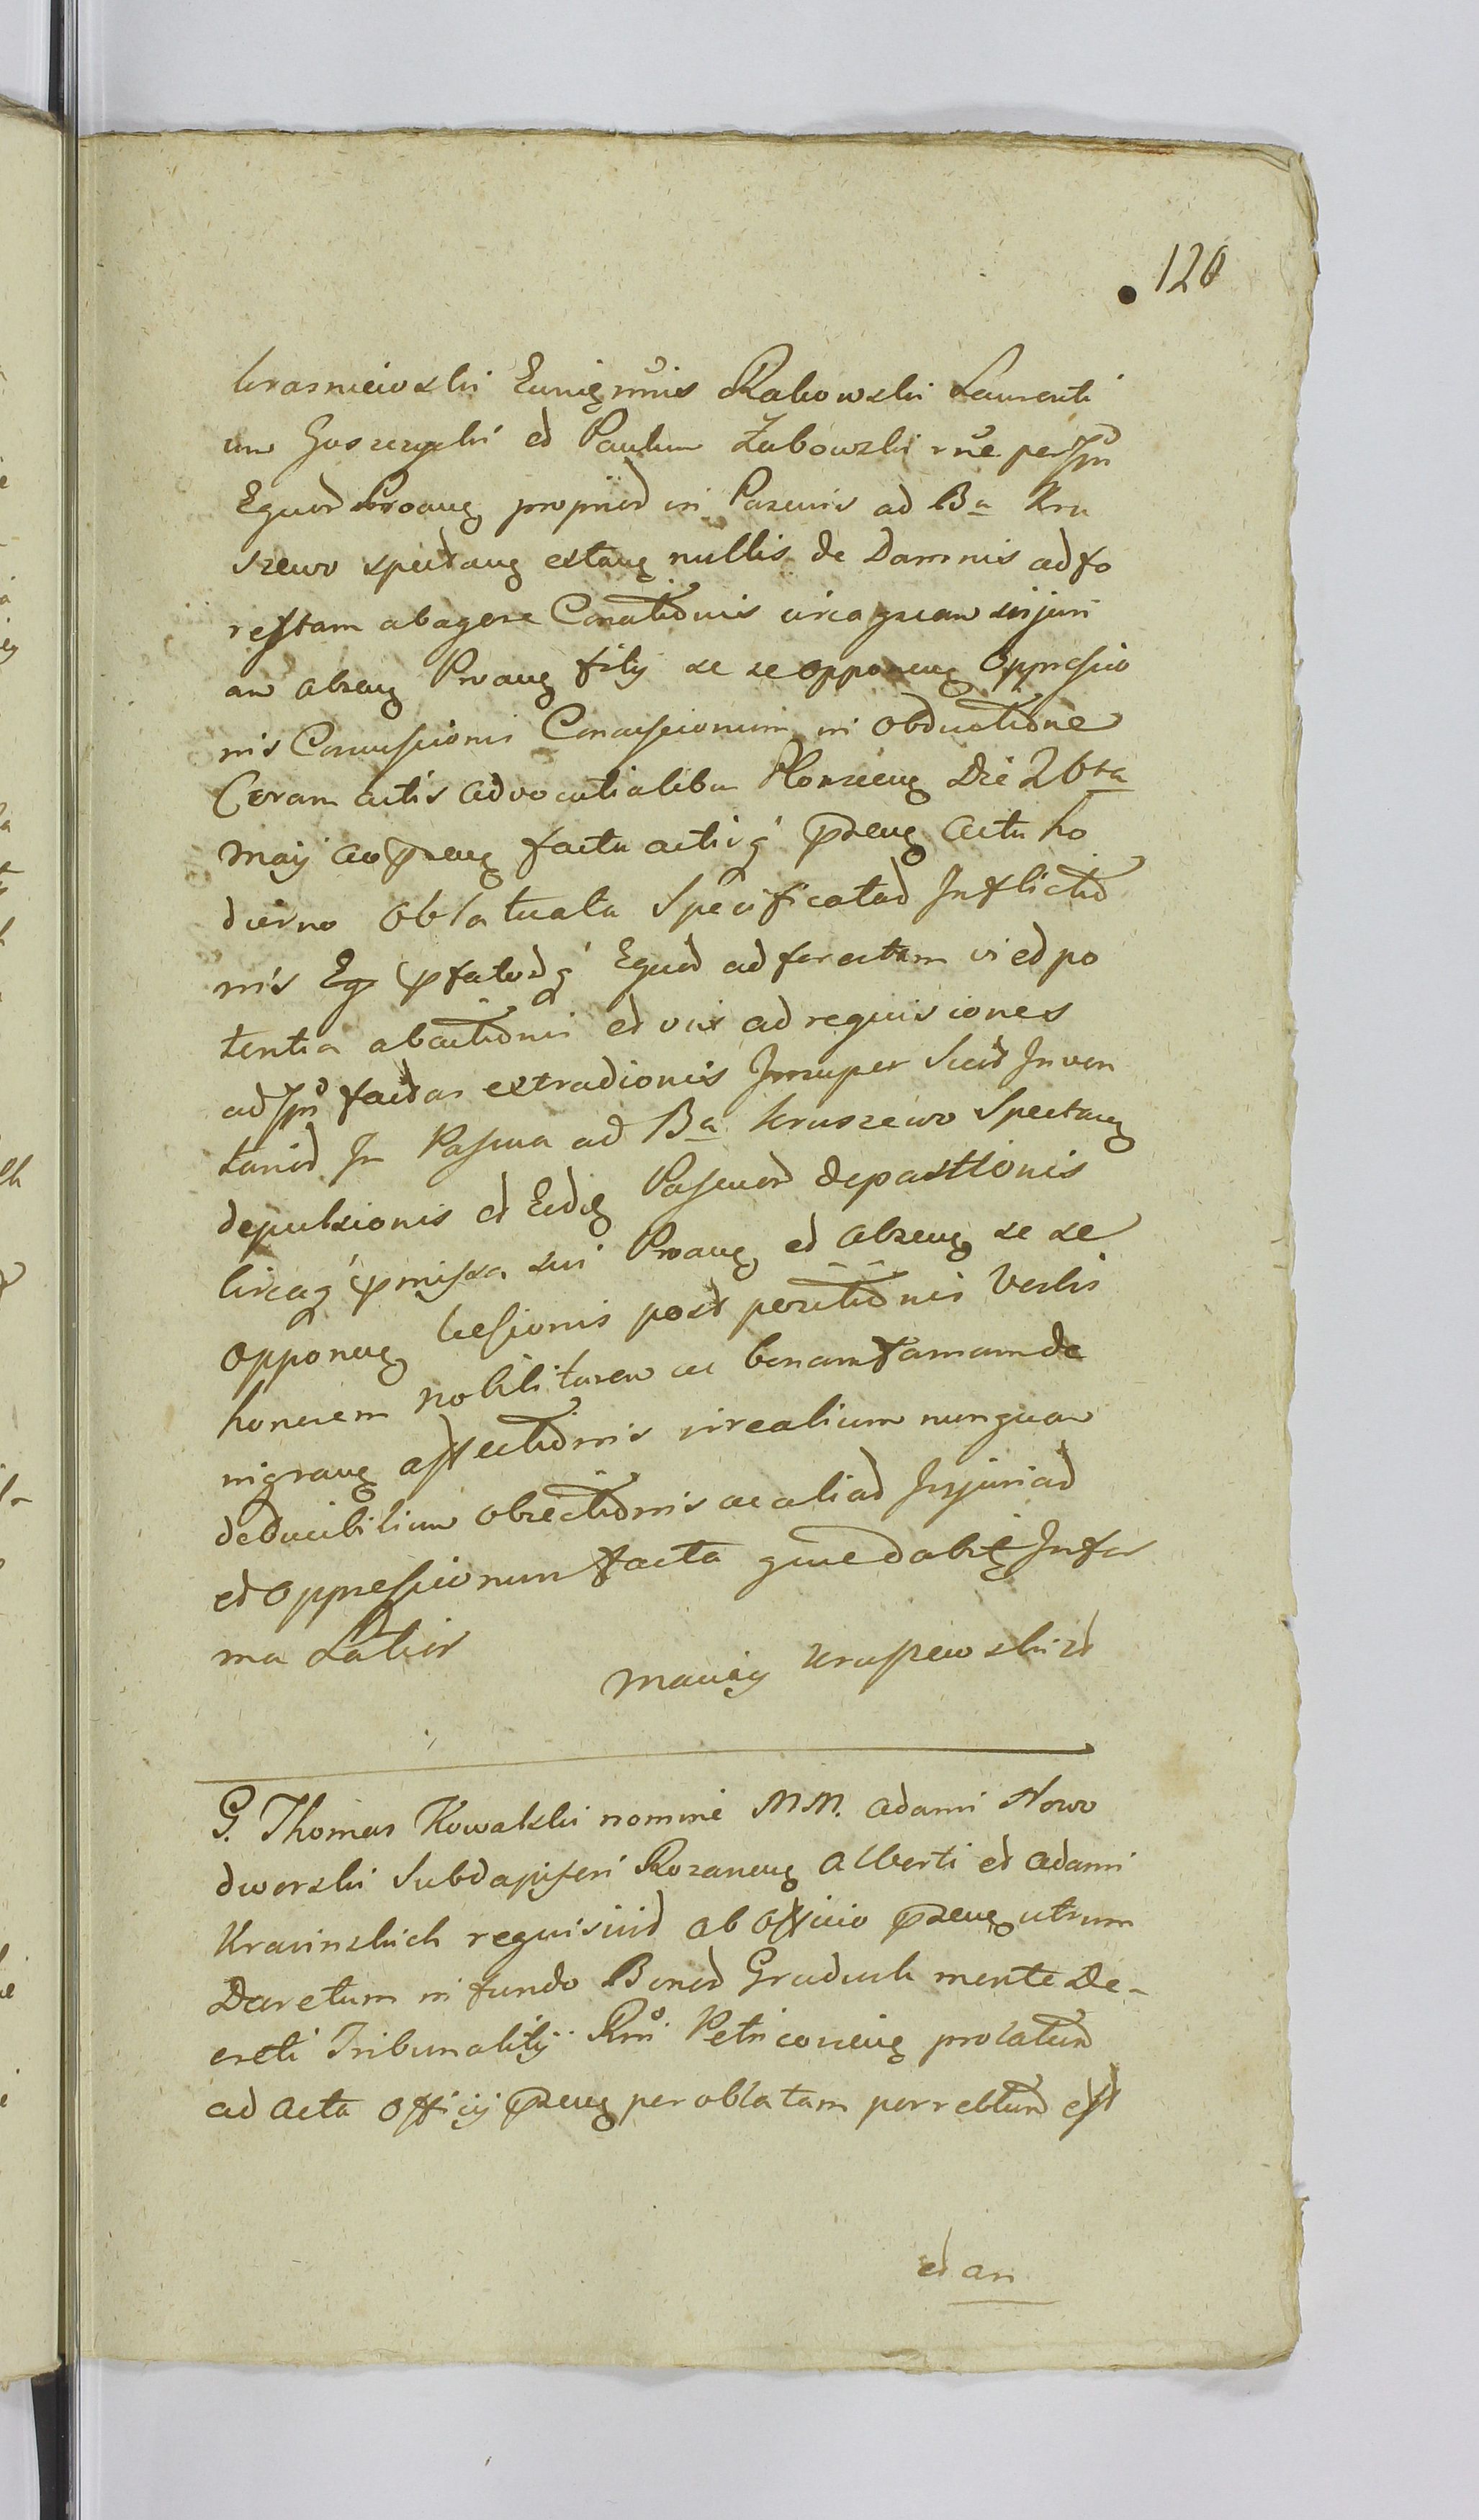 120
Krasniewski Euńg mńis Rakowski Laurenti
um Goszczycki et Paulum Zubowski rñe per Jpm
Equor Proang proprior in Pascuis ad Ba Kru
szewo spectang extang nullis de Damnis ad fo
restam abagere Conationis circa quam injuri
am abseng Proang filij se se opponeng Oppressio
nis Concussionis Concussionum in obductione
Coram actis advocatialibu Ploscieng Die 26ta
maij ao pzeng factu actisq pzeng actu ho
dierno oblatuata Specificatar Inflictio
nis Eg pfatorq Equor ad forestam vi et po
tentia abactionis et vix ad requisiones
ad Jpo factas extradionis Insuper Scid Inven
tarior In Pascua ad Ba Kruszewo Spectang
depulsionis et Eidg Pascuor depastionis
Circaq pmissa sui Proang et abseng se se
opponeng Lesionis post positionis Verbis
honorem nobilitarem ac bonam famam de
nigrang affectionis irrealium nunquam
deducibilium obiectionis ac aliar Injuriar
et oppressionum facta quve dabitg Infor
ma Latior
Maciey Kruszewski st
G. Thomas Kowalski nomine MM. Adami Nowo
dworski Subdapiferi Rozaneng Alberti et Adami
Krasinskich requisivit ab officio pzeng utrum
Decretum in fundo Bonor Gruduck mente De-
creti Tribunalitij Rni Petricovieng prolatum
ad Acta Officij pzeng per oblatam porrectum est
et an